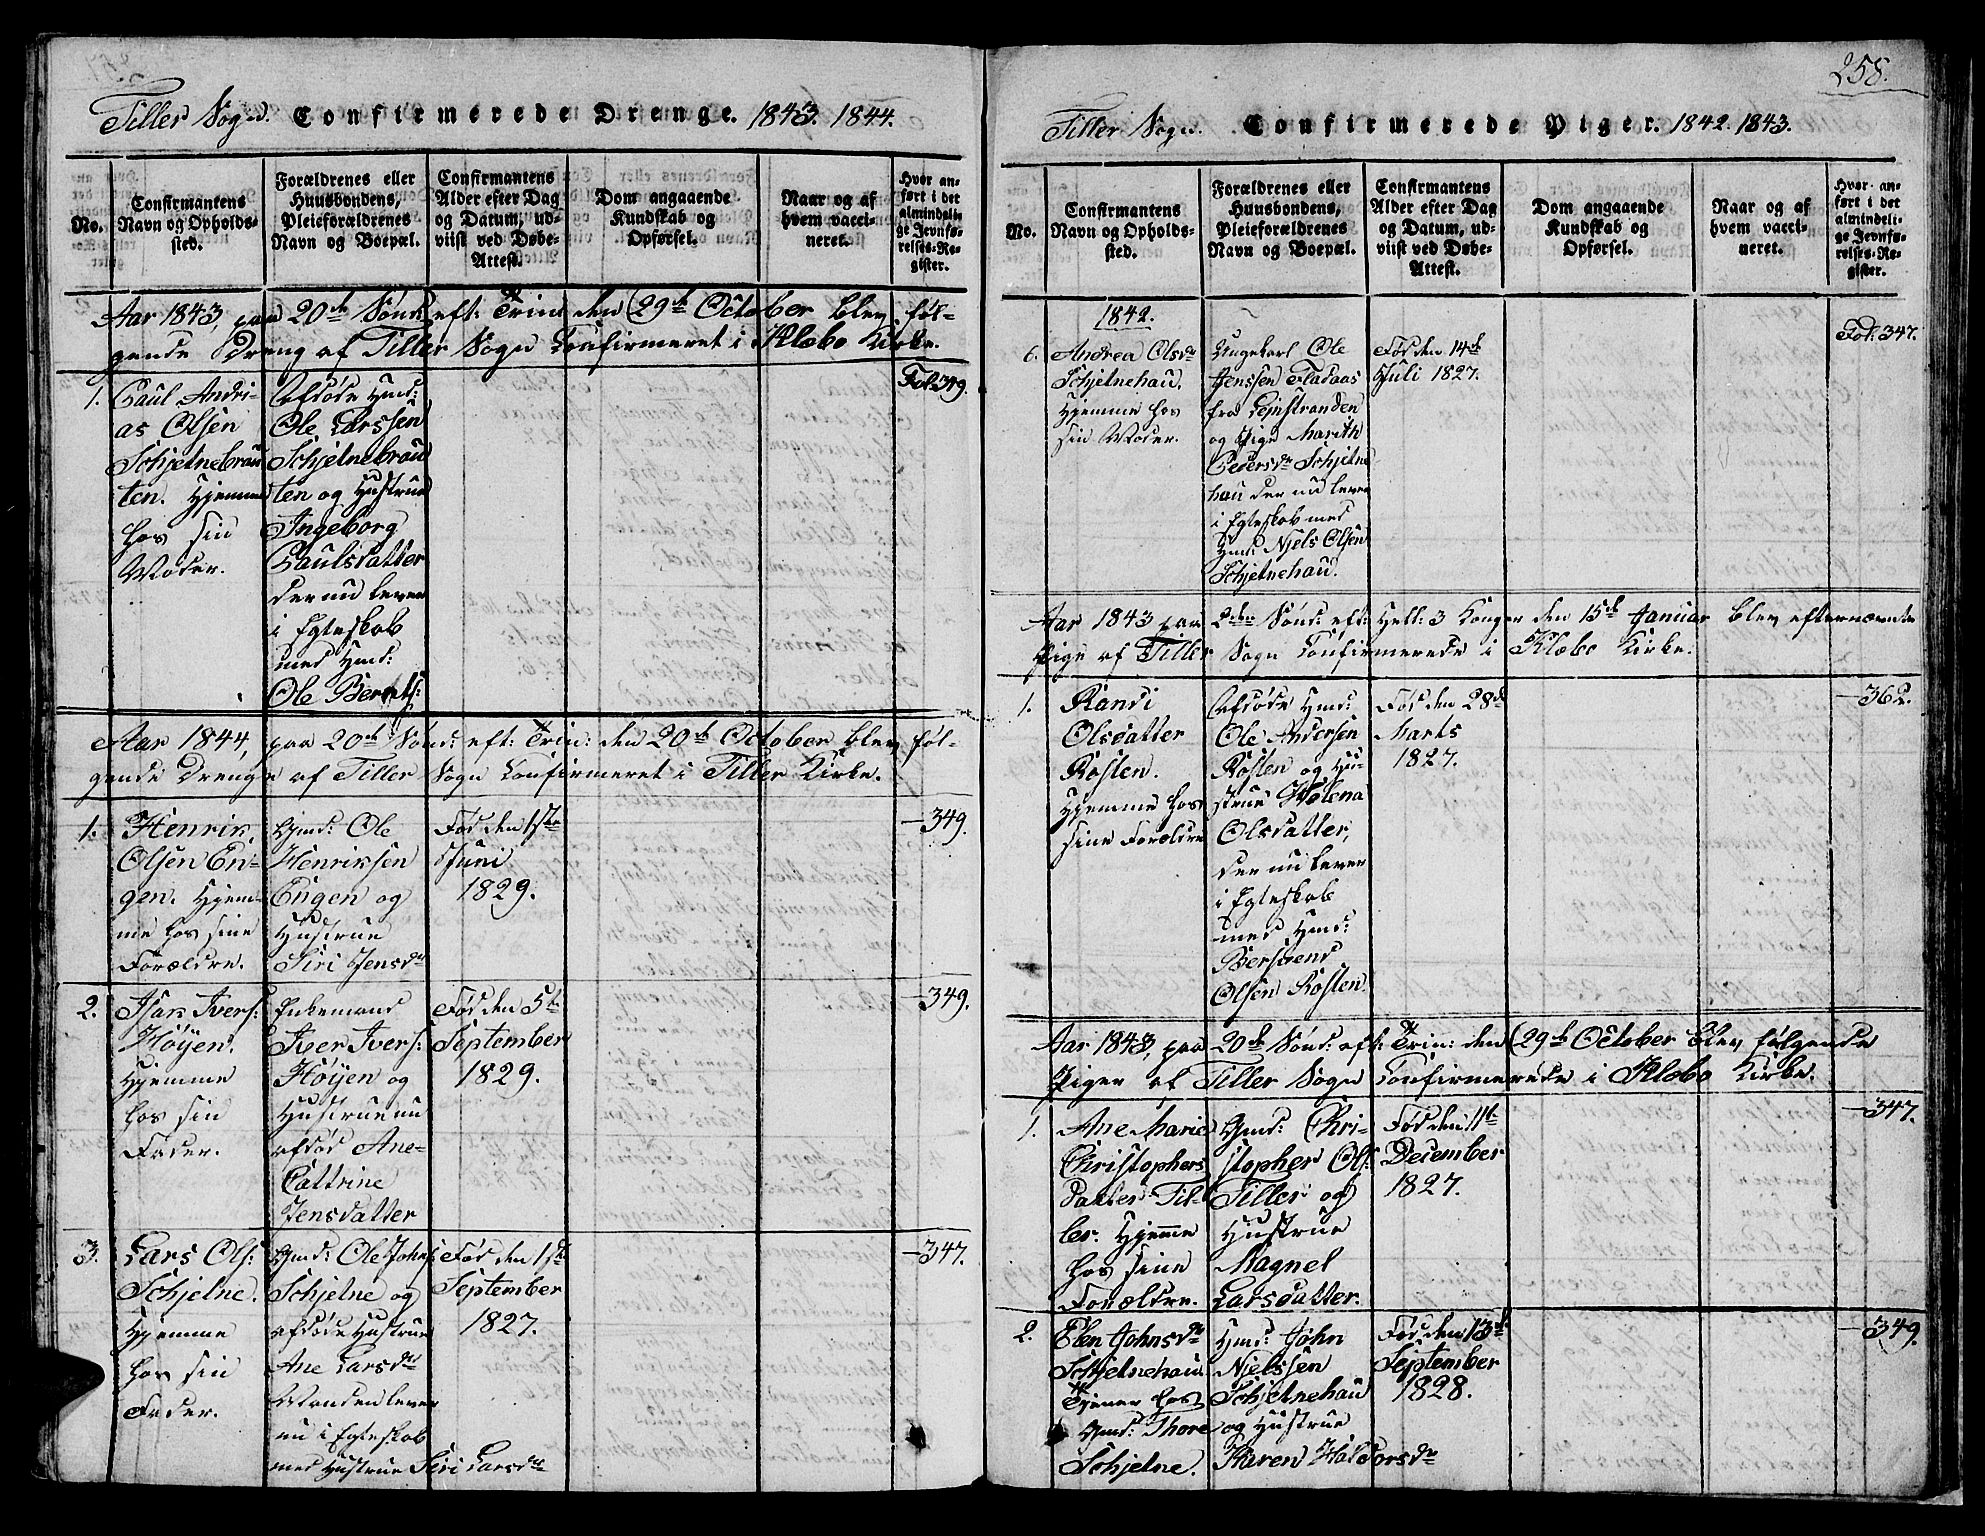 Tiller Sogn. Confirmerede Drenge. 1843. 1844.
No.
Confirmantens
Navn og Opholds-
sted.
Forældrenes eller
Huusbondens,
Pleieforældrenes
Navn og Boepæl.
Confirmantens
Alder efter Dag
og Datum, ud-
viist ved Døbe-
Attest.
Dom angaaende
Kundskab og
Opførsel.
Naar og af
hvem vacci-
neret.
Hvor an-
ført i det
almindeli-
ge Jevnfø-
relses-Re-
gister.
Aar 1843, paa 20de Sønd: eft: Trini den 29de October blev føl-
gende Dreng af Tiller Sogn Confirmeret i Klæbo Kirke.
1.
Paul Andri-
as Olsen
Schjetnebrau
ten. Hjemme
hos sin
Moder.
Afdøde Hmd:
Ole Larssen
Schjetnebrau
ten og Hustrue
Ingeborg
Paulsdatter
der nu lever
i Egteskab
med Hmd:
Ole Berents:
Fol. 349.
Aar 1844, paa 20de Sønd: eft: Trin: den 20de October blev føl-
gende Drenge af Tiller Sogn Confirmeret i Tiller Kirke.
1.
Henrik
Olsen En-
gen. Hjem-
me hos sine
Forældre.
Hmd: Ole
Henriksen
Engen og
Hustrue
Siri Jensdr
Fød den 1ste
Juni
1829.
—349.
2.
Isak Ivers:
Høyen.
Hjemme
hos sin
Fader.
Enkemand
Iver Ivers:
Høyen og
Hustrue nu
afdød Ane
Cattrine
Jensdatter
Fød den 5te
September
1829.
—349.
3.
Lars Ols:
Schjetne.
Hjemme
hos sin
Fader.
Hmd: Ole Johns:
Schjetne og
afdøde Hustrue
Ane Larsdr
Manden lever
nu i Egteskab
med Hustrue Siri Larsdr
Fød den 1ste
September
1827.
—347.
258.
Tiller Sogn. Confirmerede Piger. 1842. 1843.
No.
Confirmantens
Navn og Opholds-
sted.
Forældrenes eller
Huusbondens,
Pleieforældrenes
Navn og Boepæl.
Confirmantens
Alder efter Dag
og Datum, ud-
viist ved Døbe-
Attest.
Dom angaaende
Kundskab og
Opførsel.
Naar og af
hvem vacci-
neret.
Hvor an-
ført i det
almindeli-
ge Jevnfø-
relses-Re-
gister.
1842.
6.
Andrea Olsdr
Schjetnehau.
Hjemme hos
sin Moder.
Ungekarl Ole
Jenssen Fladaas
fra Leinstranden
og Pige Marith
Pedersdr Schjetne
hau der nu lever
i Egteskab med
Hmd: Njels Olsen
Schjetnehau.
Fød den 14de
Juli 1827.
Fol: 347.
Aar 1843 paa 2den Sønd: eft: Hell: 3 Konger den 15de Januar blev efternævnte
Pige af Tiller Sogn Confirmerede i Klæbo Kirke.
1.
Randi
Olsdatter
Røsten.
Hjemme hos
sine Forældre
Afdøde Hmd:
Ole Andersen
Røsten og Hu-
strue Helena
Olsdatter,
der nu lever
i Egteskab
med Hmd:
Bersvend
Olsen Røsten.
Fød den 28de
Marts
1827.
—362.
Aar 1843, paa 20de Sønd: eft: Trin: den 29de October blev følgende
Piger af Tiller Sogn Confirmerede i Klæbo Kirke.
1.
Ane Marie
Christophers
datter Til-
ler. Hjemme
hos sine
Forældre.
Hmd: Chri-
stopher Ols:
Tiller og
Hustrue
Magnel
Larsdatter.
Fød den 11te
December
1827.
—347.
2.
Elen Johnsdr
Schjetnehau
Tjener hos
Hmd: Thore
Schjetne.
Hmd: John
Njelssen
Schjetnehau
og Hustrue
Karen Haldorsdr
Fød den 13de
September
1828.
—349.